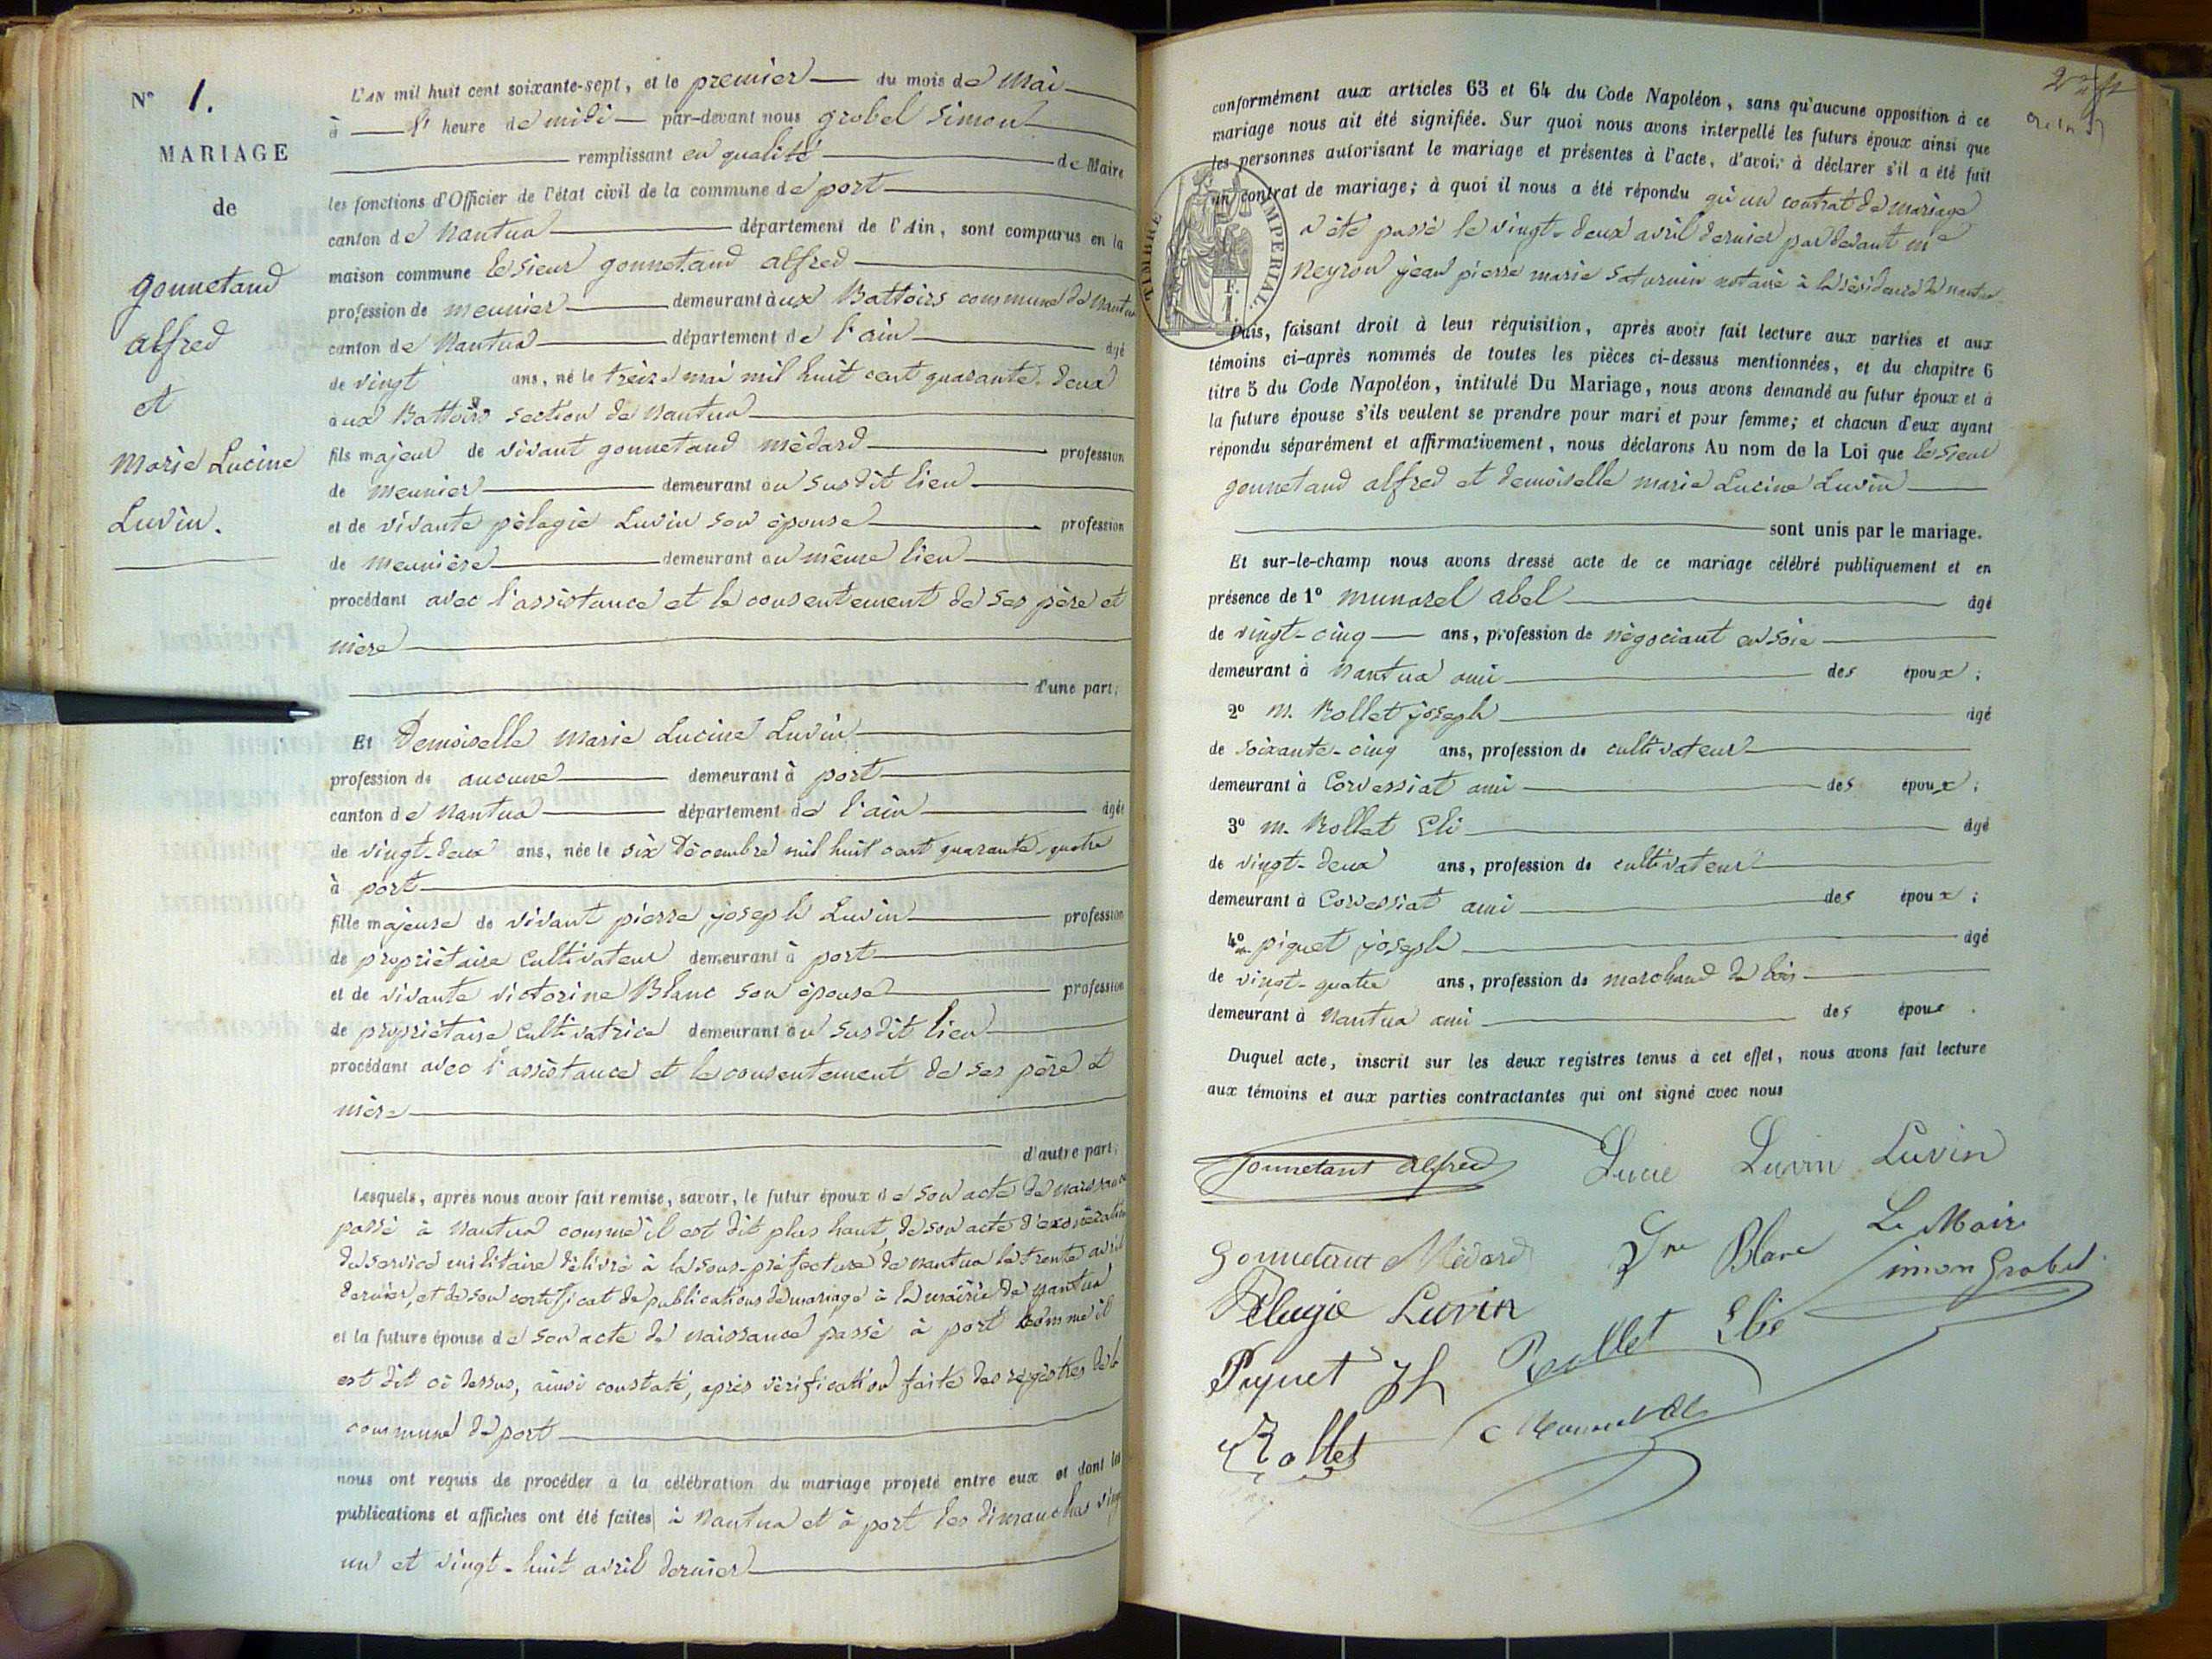 N° 1.
MARIAGE
de
gonnetand
alfred
et
Marie Lucine
Luvin.
L'AN mil huit cent soixante-sept, et le premier du mois de Mai
à heure de midi par-devant nous grobel Simon
remplissant en qualité de Maire
les fonctions d'Officier de l'état civil de la commune de port
canton de Nantua département de l'Ain, sont comparus en la
maison commune le sieur gonnetand alfred
profession de meunier demeurant aux Battoirs commune de Nantua
canton de Nantua département de l'ain âgé
de vingt ans, né le treize mai mil huit cent quarante-deux
aux Battoirs section de Nantua
fils majeur de vivant gonnetand mèdard profession
de meunier demeurant au susdit lieu
et de vivante pèlagie Luvin son èpouse profession
de meunière demeurant au même lieu
procédant avec l'assistance et le consentement de ses père et
mère
d'une part;
Et Demoiselle Marie Lucine Luvin
profession de aucune demeurant à port
canton de Nantua département de l'ain âgée
de vingt-deux ans, née le six Dècembre mil huit cent quarante-quatre
à port
fille majeure de vivant pierre joseph Luvin profession
de propriètaire cultivateur demeurant à port
et de vivante victorine Blanc son èpouse profession
de propriètaire cultivatrice demeurant au susdit lieu
procédant avec l'assistance et le consentement de ses père et
mère
d'autre part;
Lesquels, après nous avoir fait remise, savoir, le futur époux de son acte de naissance
passé à Nantua comme il est dit plus haut, de son acte d'exonèration
du service militaire dèlivré à la sous-préfecture de Nantua le trente avril
dernier, et de son certificat de publications de mariage à la mairie de Nantua
et la future épouse de son acte de naissance passé à port comme il
est dit ci dessus, ainsi constaté, après vèrification faite des registres de la
commune de port
nous ont requis de procéder à la célébration du mariage projeté entre eux et dont les
publications et affiches ont été faites à Nantua et à port les dimanches vingt
un et vingt-huit avril dernier
conformément aux articles 63 et 64 du Code Napoléon, sans qu'aucune opposition à ce
mariage nous ait été signifiée. Sur quoi nous avons interpellé les futurs époux ainsi que
les personnes autorisant le mariage et présentes à l'acte, d'avoir à déclarer s'il a été fait
un contrat de mariage; à quoi il nous a été répondu qu'un contrat de mariage
a été passé le vingt-deux avril dernier par devant me
Neyron jean pierre marie Saturnin notaire à la rèsidence de nantua
TIMBRE IMPERIAL
Puis, faisant droit à leur réquisition, après avoir fait lecture aux parties et aux
témoins ci-après nommés de toutes les pièces ci-dessus mentionnées, et du chapitre 6
titre 5 du Code Napoléon, intitulé Du Mariage, nous avons demandé au futur époux et à
la future épouse s'ils veulent se prendre pour mari et pour femme; et chacun d'eux ayant
répondu séparément et affirmativement, nous déclarons Au nom de la Loi que le sieur
gonnetand alfred et demoiselle marie Lucine Luvin
sont unis par le mariage.
Et sur-le-champ nous avons dressé acte de ce mariage célébré publiquement et en
présence de 1° munarel abel âgé
de vingt-cinq ans, profession de nègociant en soie
demeurant à Nantua ami des époux;
2° m. Rollet joseph âgé
de soixante-cinq ans, profession de cultivateur
demeurant à Corvessiat ami des époux;
3° m. Rollet Eli âgé
de vingt-deux ans, profession de cultivateur
demeurant à Corvessiat ami des époux;
4° m. piquet joseph âgé
de vingt-quatre ans, profession de marchand de bois
demeurant à Nantua ami des époux.
Duquel acte, inscrit sur les deux registres tenus à cet effet, nous avons fait lecture
aux témoins et aux parties contractantes qui ont signé avec nous
Gonnetant alfred Lucie Luvin Luvin
Gonnetant Médard Blanc Le Maire
Pélagie Luvin Simon Grobel
Piquet Jh Rollet Elie
Rollet